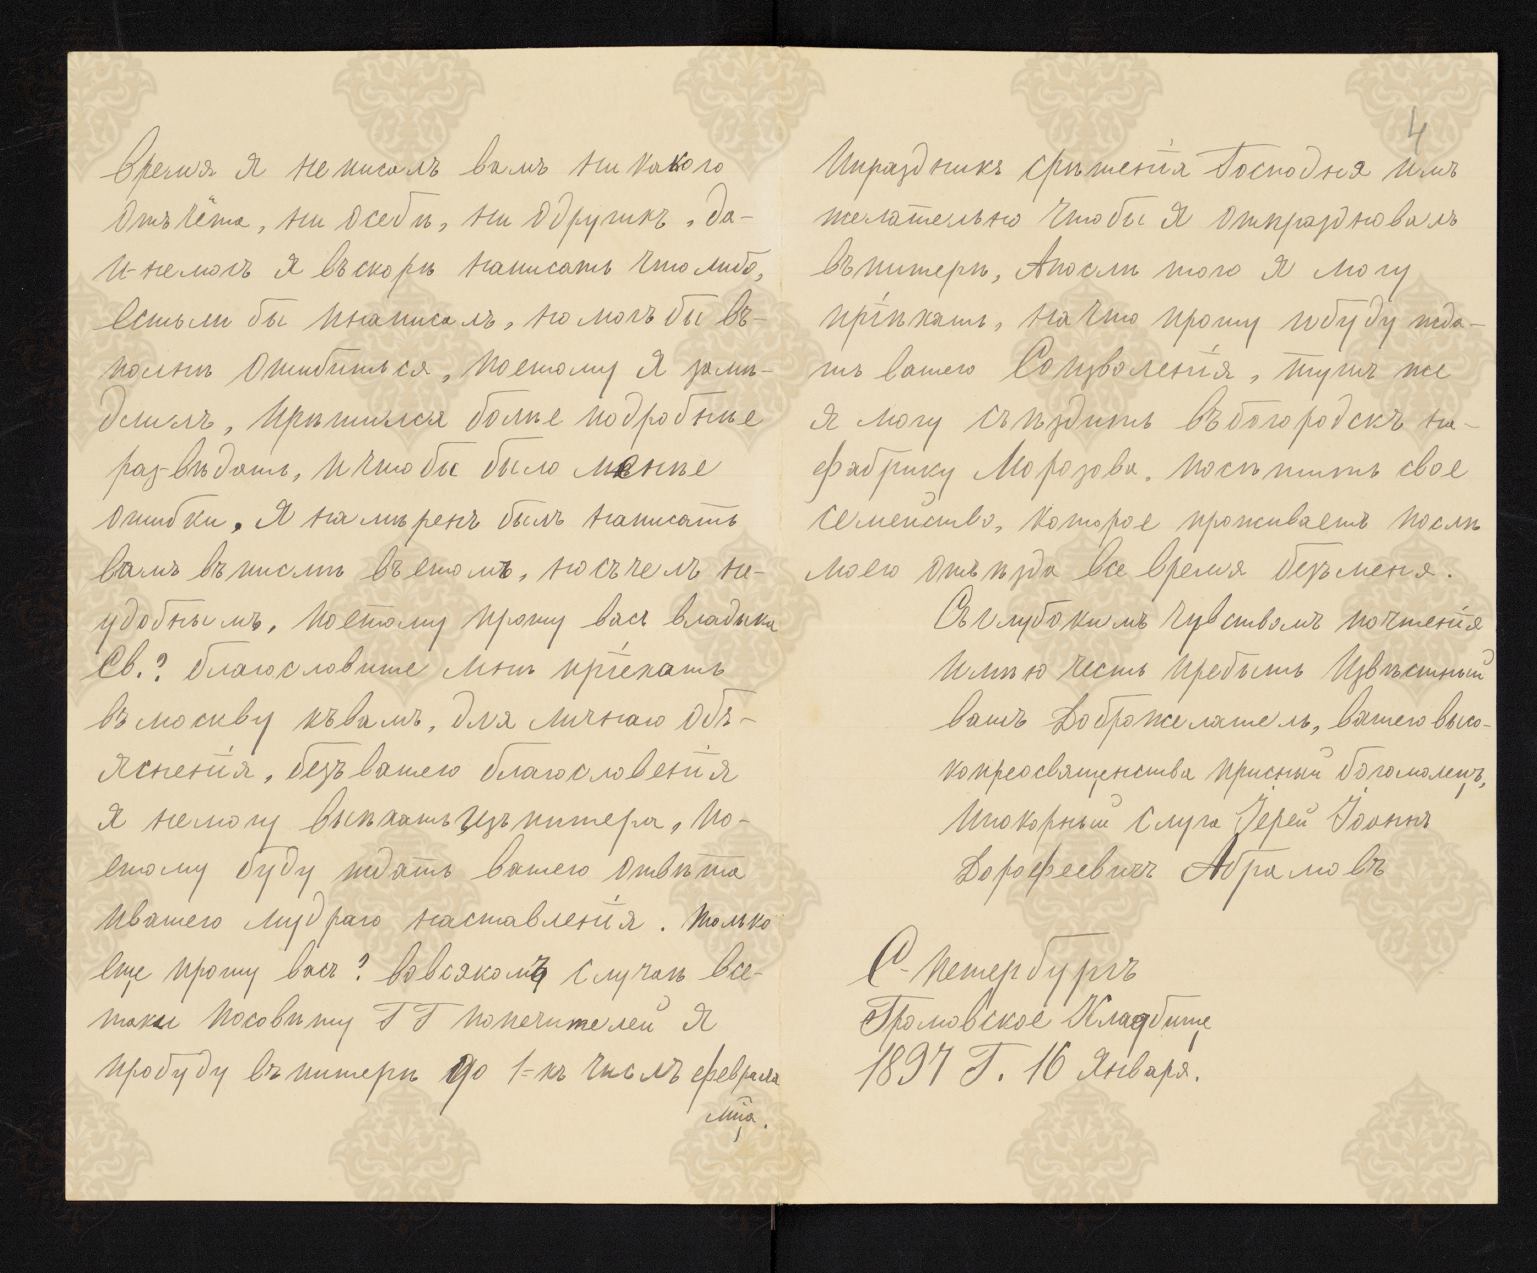 время я не писалъ вамъ ни какого
отъчёта, ни осебѣ, ни одругихъ, да-
и-немогъ я въскорѣ написать чтолибо,
естьли бы инаписалъ, но могъ бы въ-
полнѣ ошибиться, поетому я замѣ-
длилъ, ирѣшился болѣе подробнѣе
раз-вѣдать, ичтобы было менѣе
ошибки. Я намѣренъ былъ написать
вамъ въписмѣ въетомъ, носъчелъ не-
удобнымъ, поетому прошу васъ владыка
Св.? благословите мнѣ пріехать
въмоскву къвамъ, для личнаго объ-
ясненія, безъ вашего благословенія
я немогу выѣхать изъ питера, по-
етому буду ждать вашего отвѣта
ивашего мудраго наставленія. только
еще прошу васъ? вовсякомъ случаѣ все-
таки посовѣту ГГ попечителей я
пробуду въ питерѣ до 1=хъ числъ февраля
мца.
4
Ипраздникъ срѣтенія Господня имъ
желательно чтобы я отпраздновалъ
въпитерѣ, Апослѣ того я могу
пріѣхать, на что прошу ибуду жда-
ть вашего Соизволенія, тутъ же
я могу съѣздить въбогородскъ на-
фабрику Морозова, посѣтить свое
семейство, которое проживаетъ послѣ
моего отъѣзда все время безъменя.
Съглубокимъ чувствомъ почтенія
имѣю честь пребыть Извѣстный
вашъ Доброжелатель, вашего высо-
копреосвященства присный богомолецъ,
Ипокорный слуга Іерей Іоаннъ
Дорофеевичъ Абрамовъ
С-петербургъ
Громовское Кладбище
1897 Г. 16 Января.